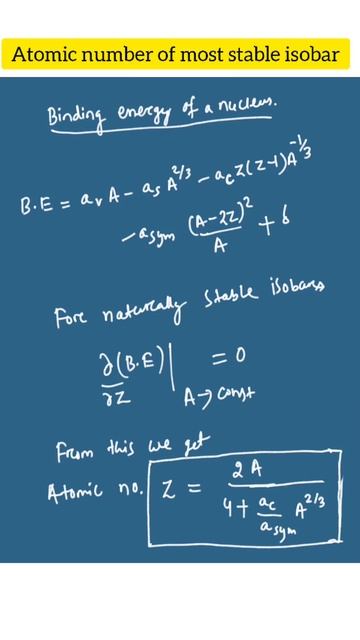 Atomic number of most stable isobar
Binding energy of a nucleus.
B.E = a_v A - a_s A^{2/3} - a_c Z(Z-1)A^{-1/3}
- a_sym (A-2Z)^2 / A + δ
Fore naturally stable isobars
∂(B.E)/∂Z | A→const = 0
From this we get
Atomic no. Z = 2A / (4 + a_c/a_sym A^{2/3})